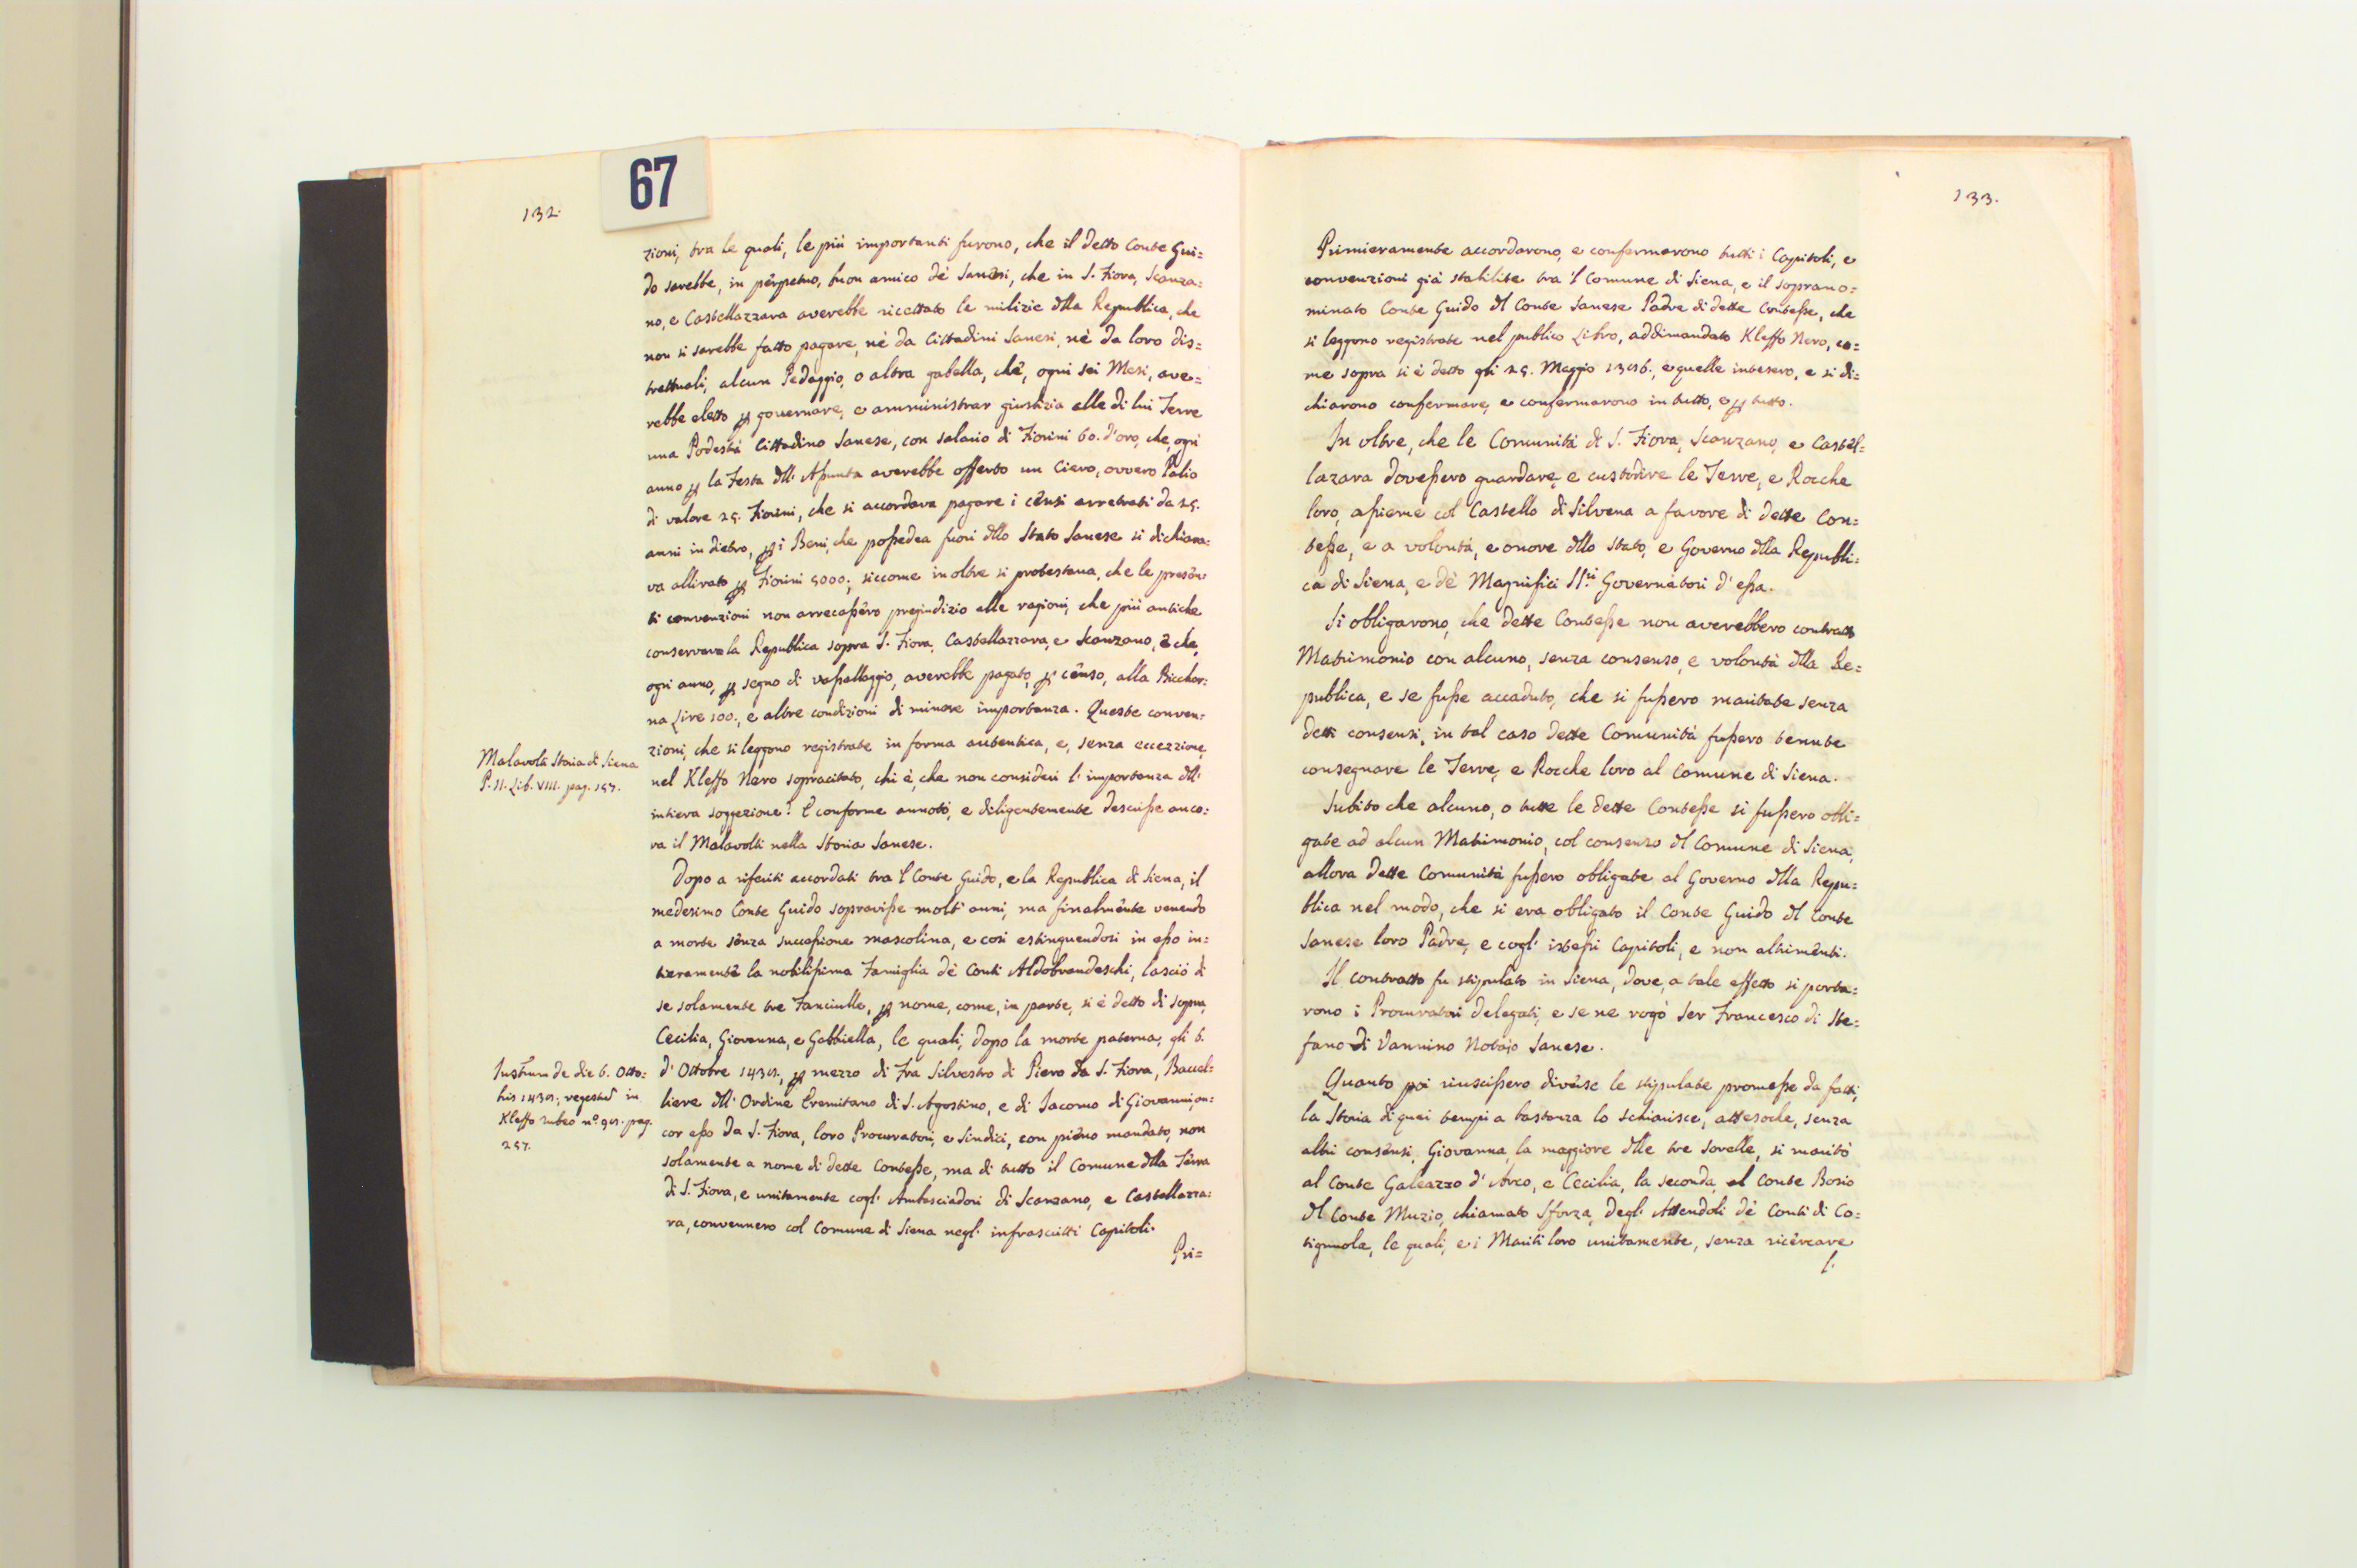 132.
67
zioni, tra le quali, le più importanti furono, che il detto Conte Gui=
do sarebbe, in perpetuo, buon amico dè Sanesi, che in S. Fiora, Scanza=
no, e Castellazzara averebbe ricettato le milizie dlla Republica, che
non si sarebbe fatto pagare, nè da Cittadini Sanesi, nè da loro dis=
trettuali, alcun Pedaggio, o altra gabella, chè, ogni sei Mesi, ave=
rebbe eletto p governare, e amministrar giustizia alle di lui Terre
una Podestà Cittadino Sanese, con salario di Fiorini 60. d'oro, che, ogni
anno p la Festa dll' Aſsunta averebbe offerto un Ciero, ovvero Palio
di valore 25. Fiorini, che si accordava pagare i censi arretrati da 25.
anni in dietro, p i Beni, che poſsedea fuori dllo Stato Sanese si dichiara=
va allirato p Fiorini 5000., siccome inoltre si protestava, che le presen=
ti convenzioni non arrecaſsero pregiudizio alle ragioni, che più antiche
conservava la Republica sopra S. Fiora, Castellazzara, e Scanzano, e che,
ogni anno, p segno di vaſsallaggio, averebbe pagato, p censo, alla Biccher=
na Lire 100., e altre condizioni di minore importanza. Queste conven=
zioni, che si leggono registrate in forma autentica, e, senza eccezzione,
nel Kleffo Nero sopracitato, chi è, che non consideri l'importanza dll'
intiera soggezione? E conforme annotò, e diligentemente descriſse anco=
ra il Malavolti nella Storia Sanese.
Malavolti Storia di Siena
P. II. Lib. VIII. pag. 157.
Dopo a riferiti accordati tra 'l Conte Guido, e la Republica di Siena, il
medesimo Conte Guido sopraviſse molt' anni, ma finalmente venendo
a morte senza succeſsione mascolina, e così estinguendosi in eſso in=
tieramente la nobiliſsima Famiglia dè Conti Aldobrandeschi, lasciò di
se solamente tre Fanciulle, p nome, come, in parte, si è detto di sopra,
Cecilia, Giovanna, e Gabbiella, le quali, dopo la morte paterna, gli 6.
d'Ottobre 1439., p mezzo di Fra Silvestro di Piero da S. Fiora, Baccel=
liere dll' Ordine Eremitano di S. Agostino, e di Iacomo di Giovanni, an=
cor eſso da S. Fiora, loro Procuratori, e Sindici, con pieno mandato, non
solamente a nome di dette Conteſse, ma di tutto il Comune dlla Terra
di S. Fiora, e unitamente cogl' Ambasciadori di Scanzano, e Castellazza=
ra, convennero col Comune di Siena negl' infrascritti Capitoli.
Pri=
Instrum de die 6. Otto=
bris 1439., regestũ in
Kleffo rubeo nº 99. pag.
257.
133.
Primieramente accordarono, e confermarono tutti i Capitoli, e
convenzioni già stabilite tra 'l Comune di Siena, e il soprano=
minato Conte Guido dl Conte Sanese Padre di dette Conteſse, che
si leggono registrate nel publico Libro, addimandato Kleffo Nero, co=
me sopra si è detto gli 25. Maggio 1396., e quelle intesero, e si di=
chiarono confermare, e confermarono in tutto, e p tutto.
In oltre, che le Comunità di S. Fiora, Scanzano, e Castel=
lazara doveſsero guardare, e custodire le Terre, e Rocche
loro, aſsieme col Castello di Silvena a favore di dette Con=
teſse, e a volontà, e onore dllo Stato, e Governo dlla Republi=
ca di Siena, e dè Magnifici SS.ri Governatori d'eſsa.
Si obligarono, che dette Conteſse non averebbero contratto
Matrimonio con alcuno, senza consenso, e volontà dlla Re=
publica, e se fuſse accaduto, che si fuſsero maritate senza
detti consensi, in tal caso dette Comunità fuſsero tenute
consegnare le Terre, e Rocche loro al Comune di Siena.
Subito che alcuno, o tutte le dette Conteſse si fuſsero obli=
gate ad alcun Matrimonio, col consenso dl Comune di Siena,
allora dette Comunità fuſsero obligate al Governo dlla Repu=
blica nel modo, che si era obligato il Conte Guido dl Conte
Sanese loro Padre, e cogl' isteſsi Capitoli, e non altrimenti.
Il contratto fu stipulato in Siena, dove, a tale effetto si porta=
rono i Procuratori delegati, e se ne rogò Ser Francesco di Ste=
fano di Vannino Notajo Sanese.
Quanto poi riusciſsero diverse le stipulate promeſse da fatti,
la Storia di quei tempi a bastanza lo schiarisce, attesoche, senza
altri consensi, Giovanna, la maggiore dlle tre Sorelle, si maritò
al Conte Galeazzo d'Arco, e Cecilia, la seconda, al Conte Bosio
dl Conte Muzio, chiamato Sforza, degl' Attendoli dè Conti di Co=
tignuola, le quali, e i Mariti loro unitamente, senza ricercare